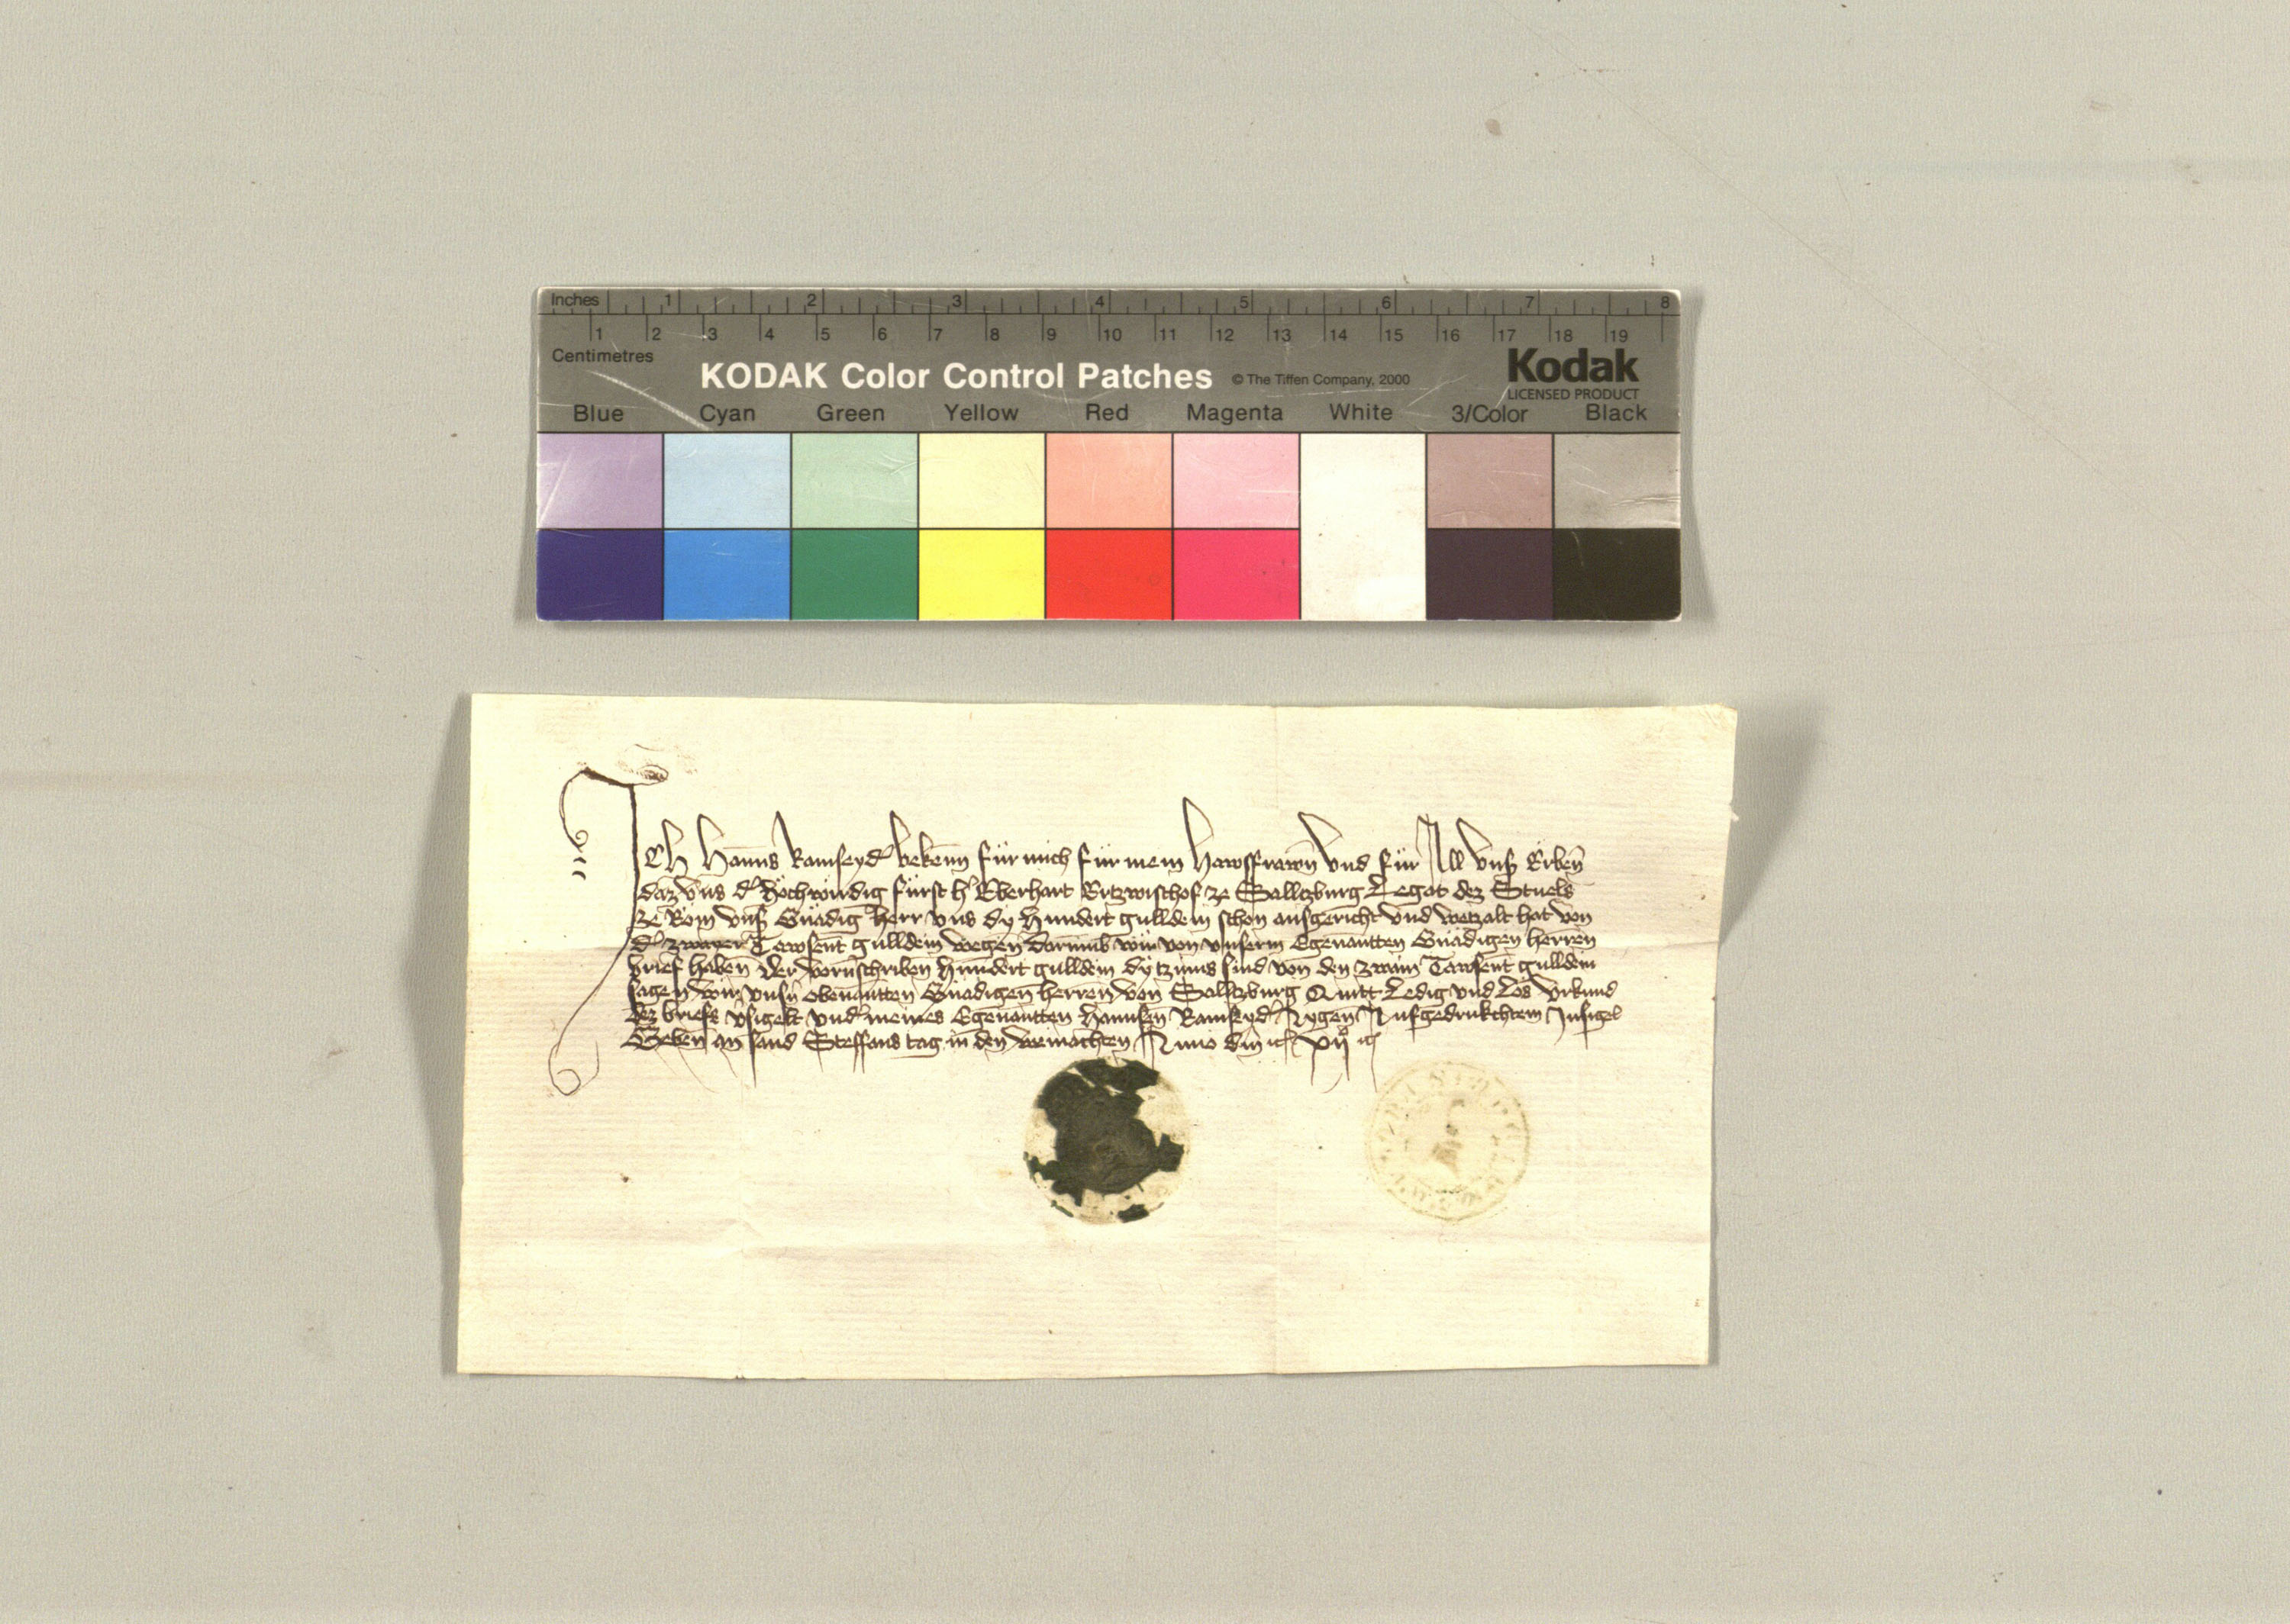 Inches 1 2 3 4 5 6 7 8
1 2 3 4 5 6 7 8 9 10 11 12 13 14 15 16 17 18 19
Centimetres
KODAK Color Control Patches © The Tiffen Company, 2000 Kodak
LICENSED PRODUCT
Blue Cyan Green Yellow Red Magenta White 3/Color Black
Ich Hanns Ramseyd bekenn für mich für mein Hawsfrawn vnd für All vnß Erben
daz vns d Hochwirdig fürst h Eberhart Ertzwischof ze Salltzburg Legat dez Stuels
ze Rom vnß Gnädig herr vns dy Hundert gulldein schon ausgericht vnd wetzalt hat von
d zwayer Tawsent gulldein wegen Darumb wir von vnserm Egenantten Gnädigen herren
brief haben Der vorgschriben Hundert gulldein dy tzinns sind von den zwain Tawsent gulldein
sagen wir vnsn obenantten Gnädigen herren von Salltzburg Quitt Ledig vnd Los Vrkund
dez briefs vsigelt vnd meines Egenantten Hannsen Ramseyd Aygen Aufgedrukchtem Insigel
Geben an sand Steffans tag in den Weinachten Anno dm